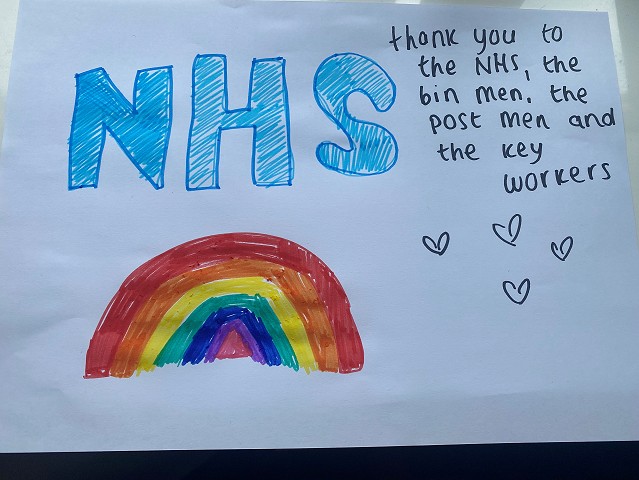 NHS
thank you to
the NHS, the
bin men, the
post men and
the key
workers